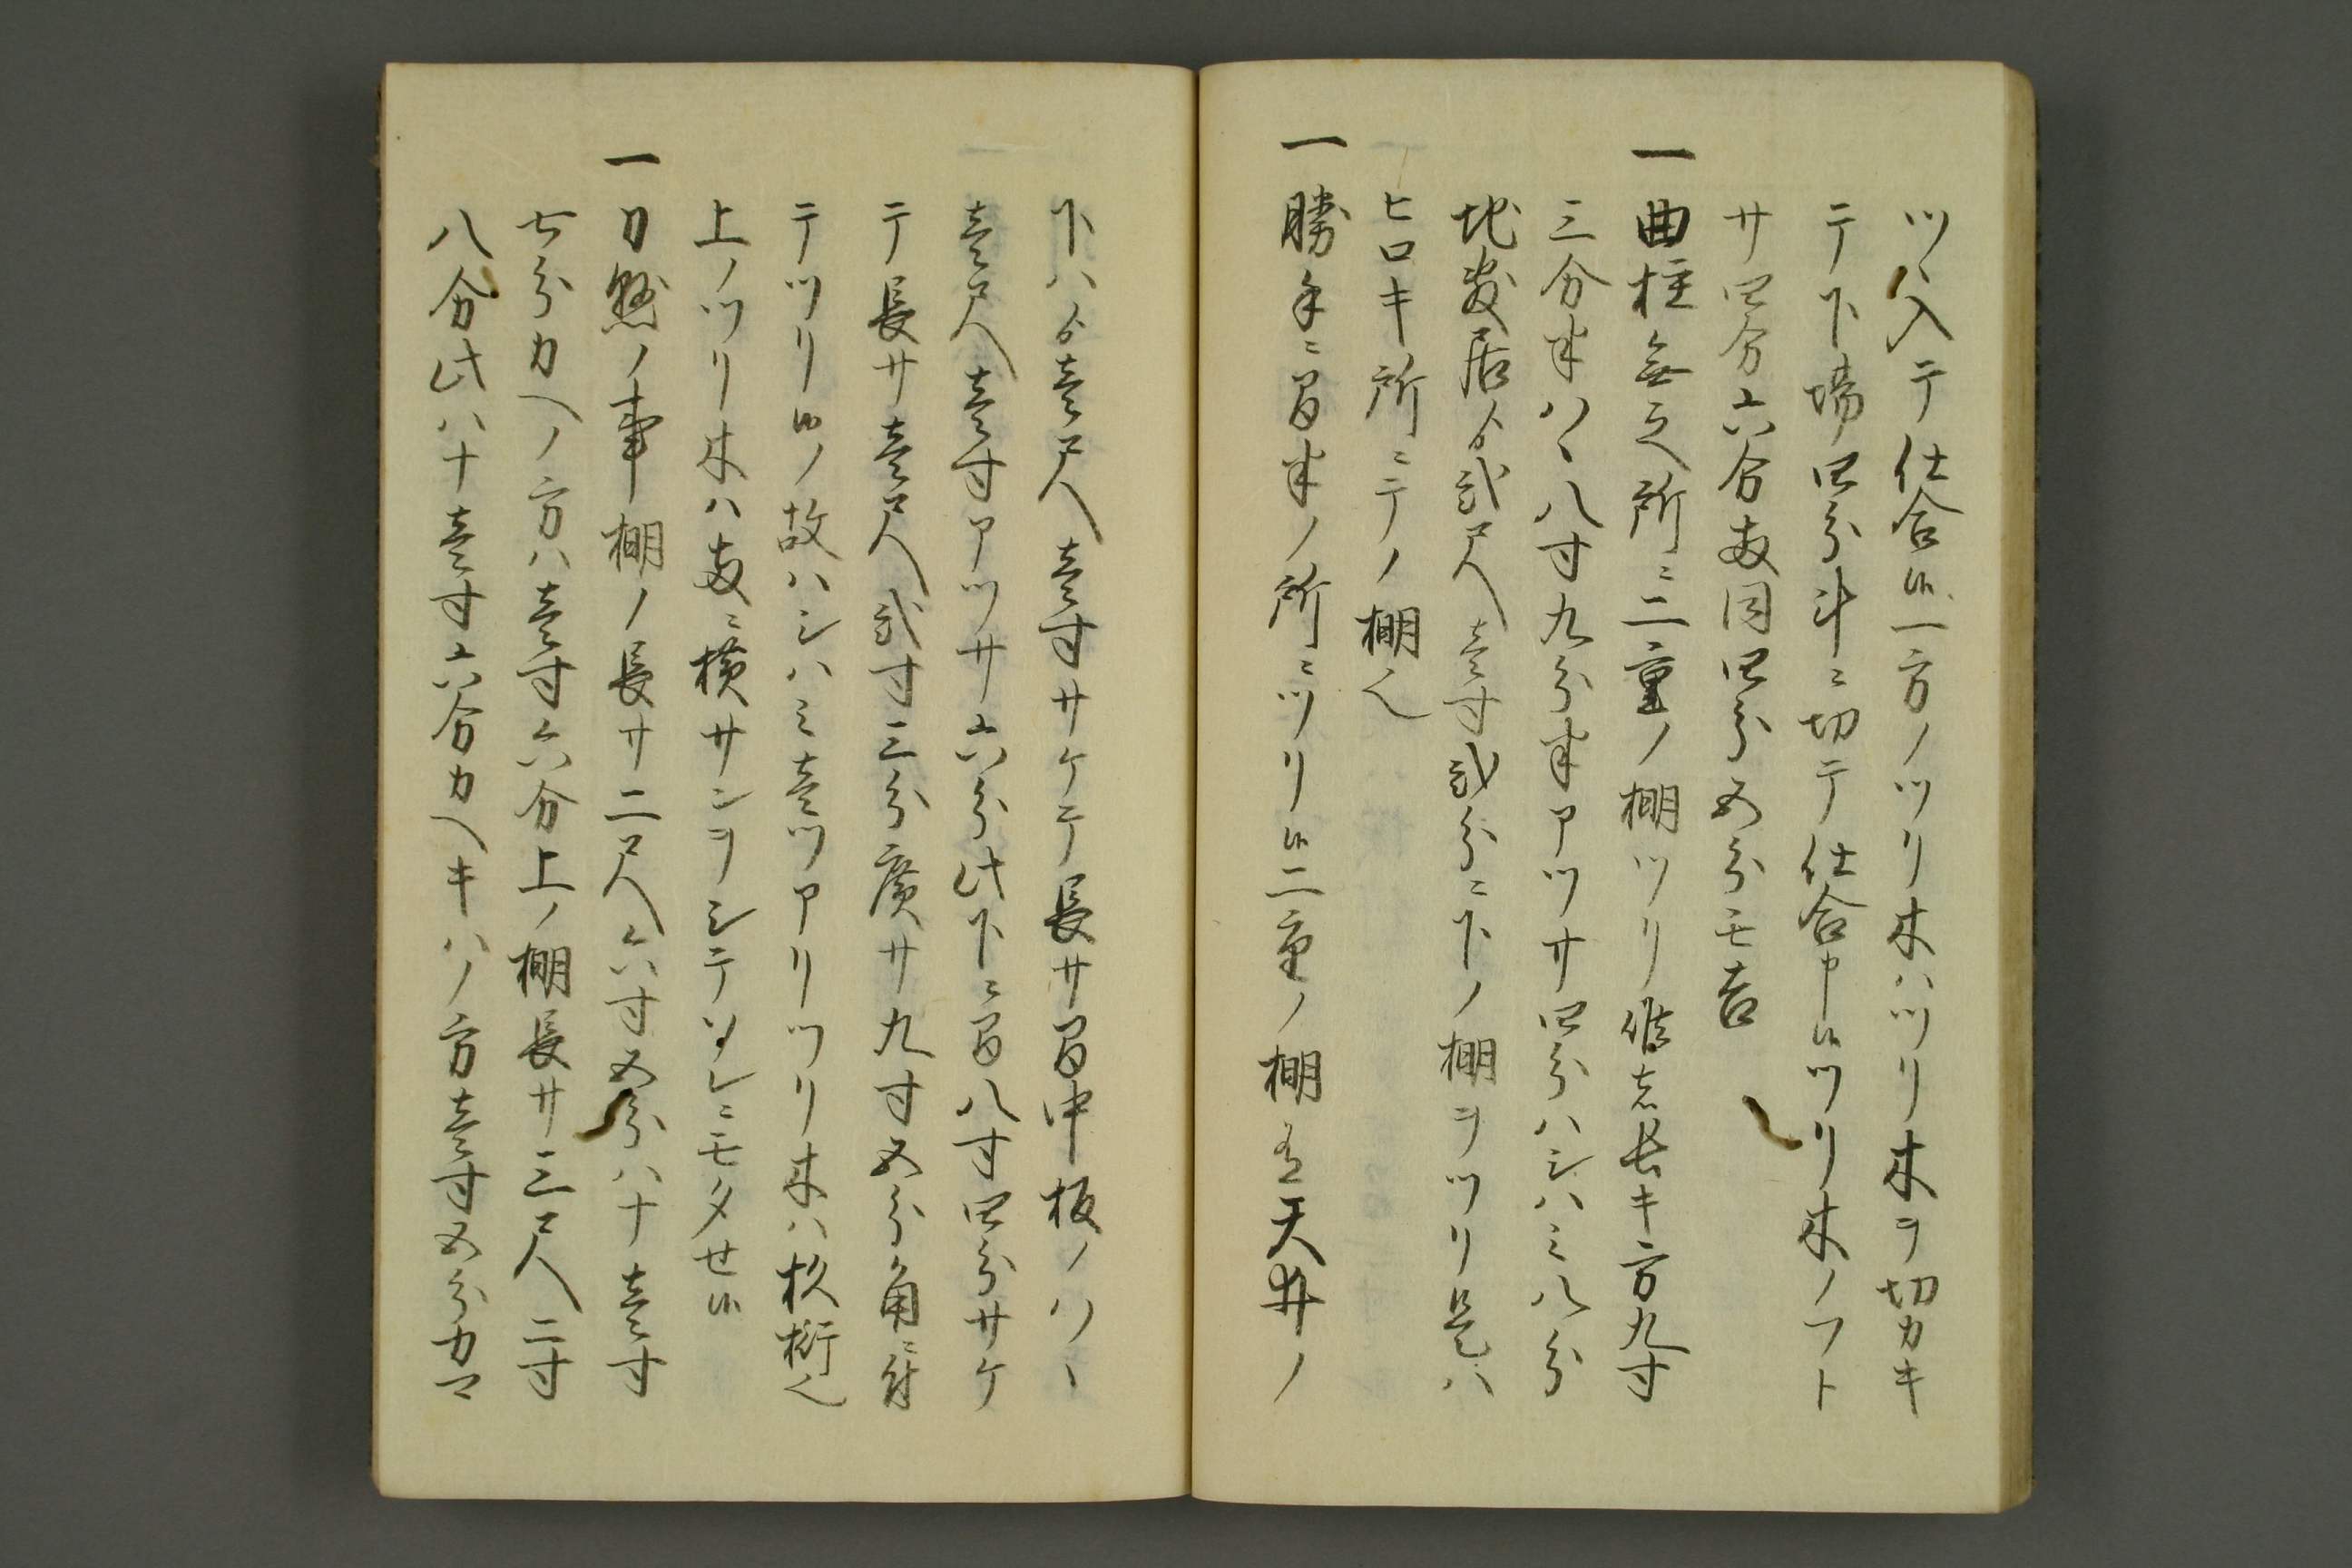 ツ入テ仕合候一方ノツリ木ハツリ木ヲ切カキ
テ下場四分斗ニ切テ仕合申候ツリ木ノフト
サ四分六分或同四分五分モ吉
一曲柱無之所ニ二重ノ棚ツリ候者長キ方九寸
三分半ハヽ八寸九分半アツサ四分ハシハミ八分
地敷居ゟ弐尺壱寸弐分ニ下ノ棚ヲツリ是ハ
ヒロキ所ニテノ棚也
一勝手ニ間半ノ所ニツリ候二重ノ棚ハ天井ノ
下ハゟ壱尺壱寸サケテ長サ間中板ノハヽ
壱尺壱寸アツサ六分此下ニ間八寸四分サケ
テ長サ壱尺弐寸三分廣サ九寸五分角ニ付
テツリ申ノ故ハシハミ壱ツアリツリ木ハ杉桁也
上ノツリ木ハ或ニ横サンヲシテソレニモタせ候
一刀懸ノ事棚ノ長サ二尺六寸五分ハナ壱寸
七分カヘノ方ハ壱寸六分上ノ棚長サ三尺二寸
八分此ハナ壱寸六分カヘキハノ方壱寸五分カマ